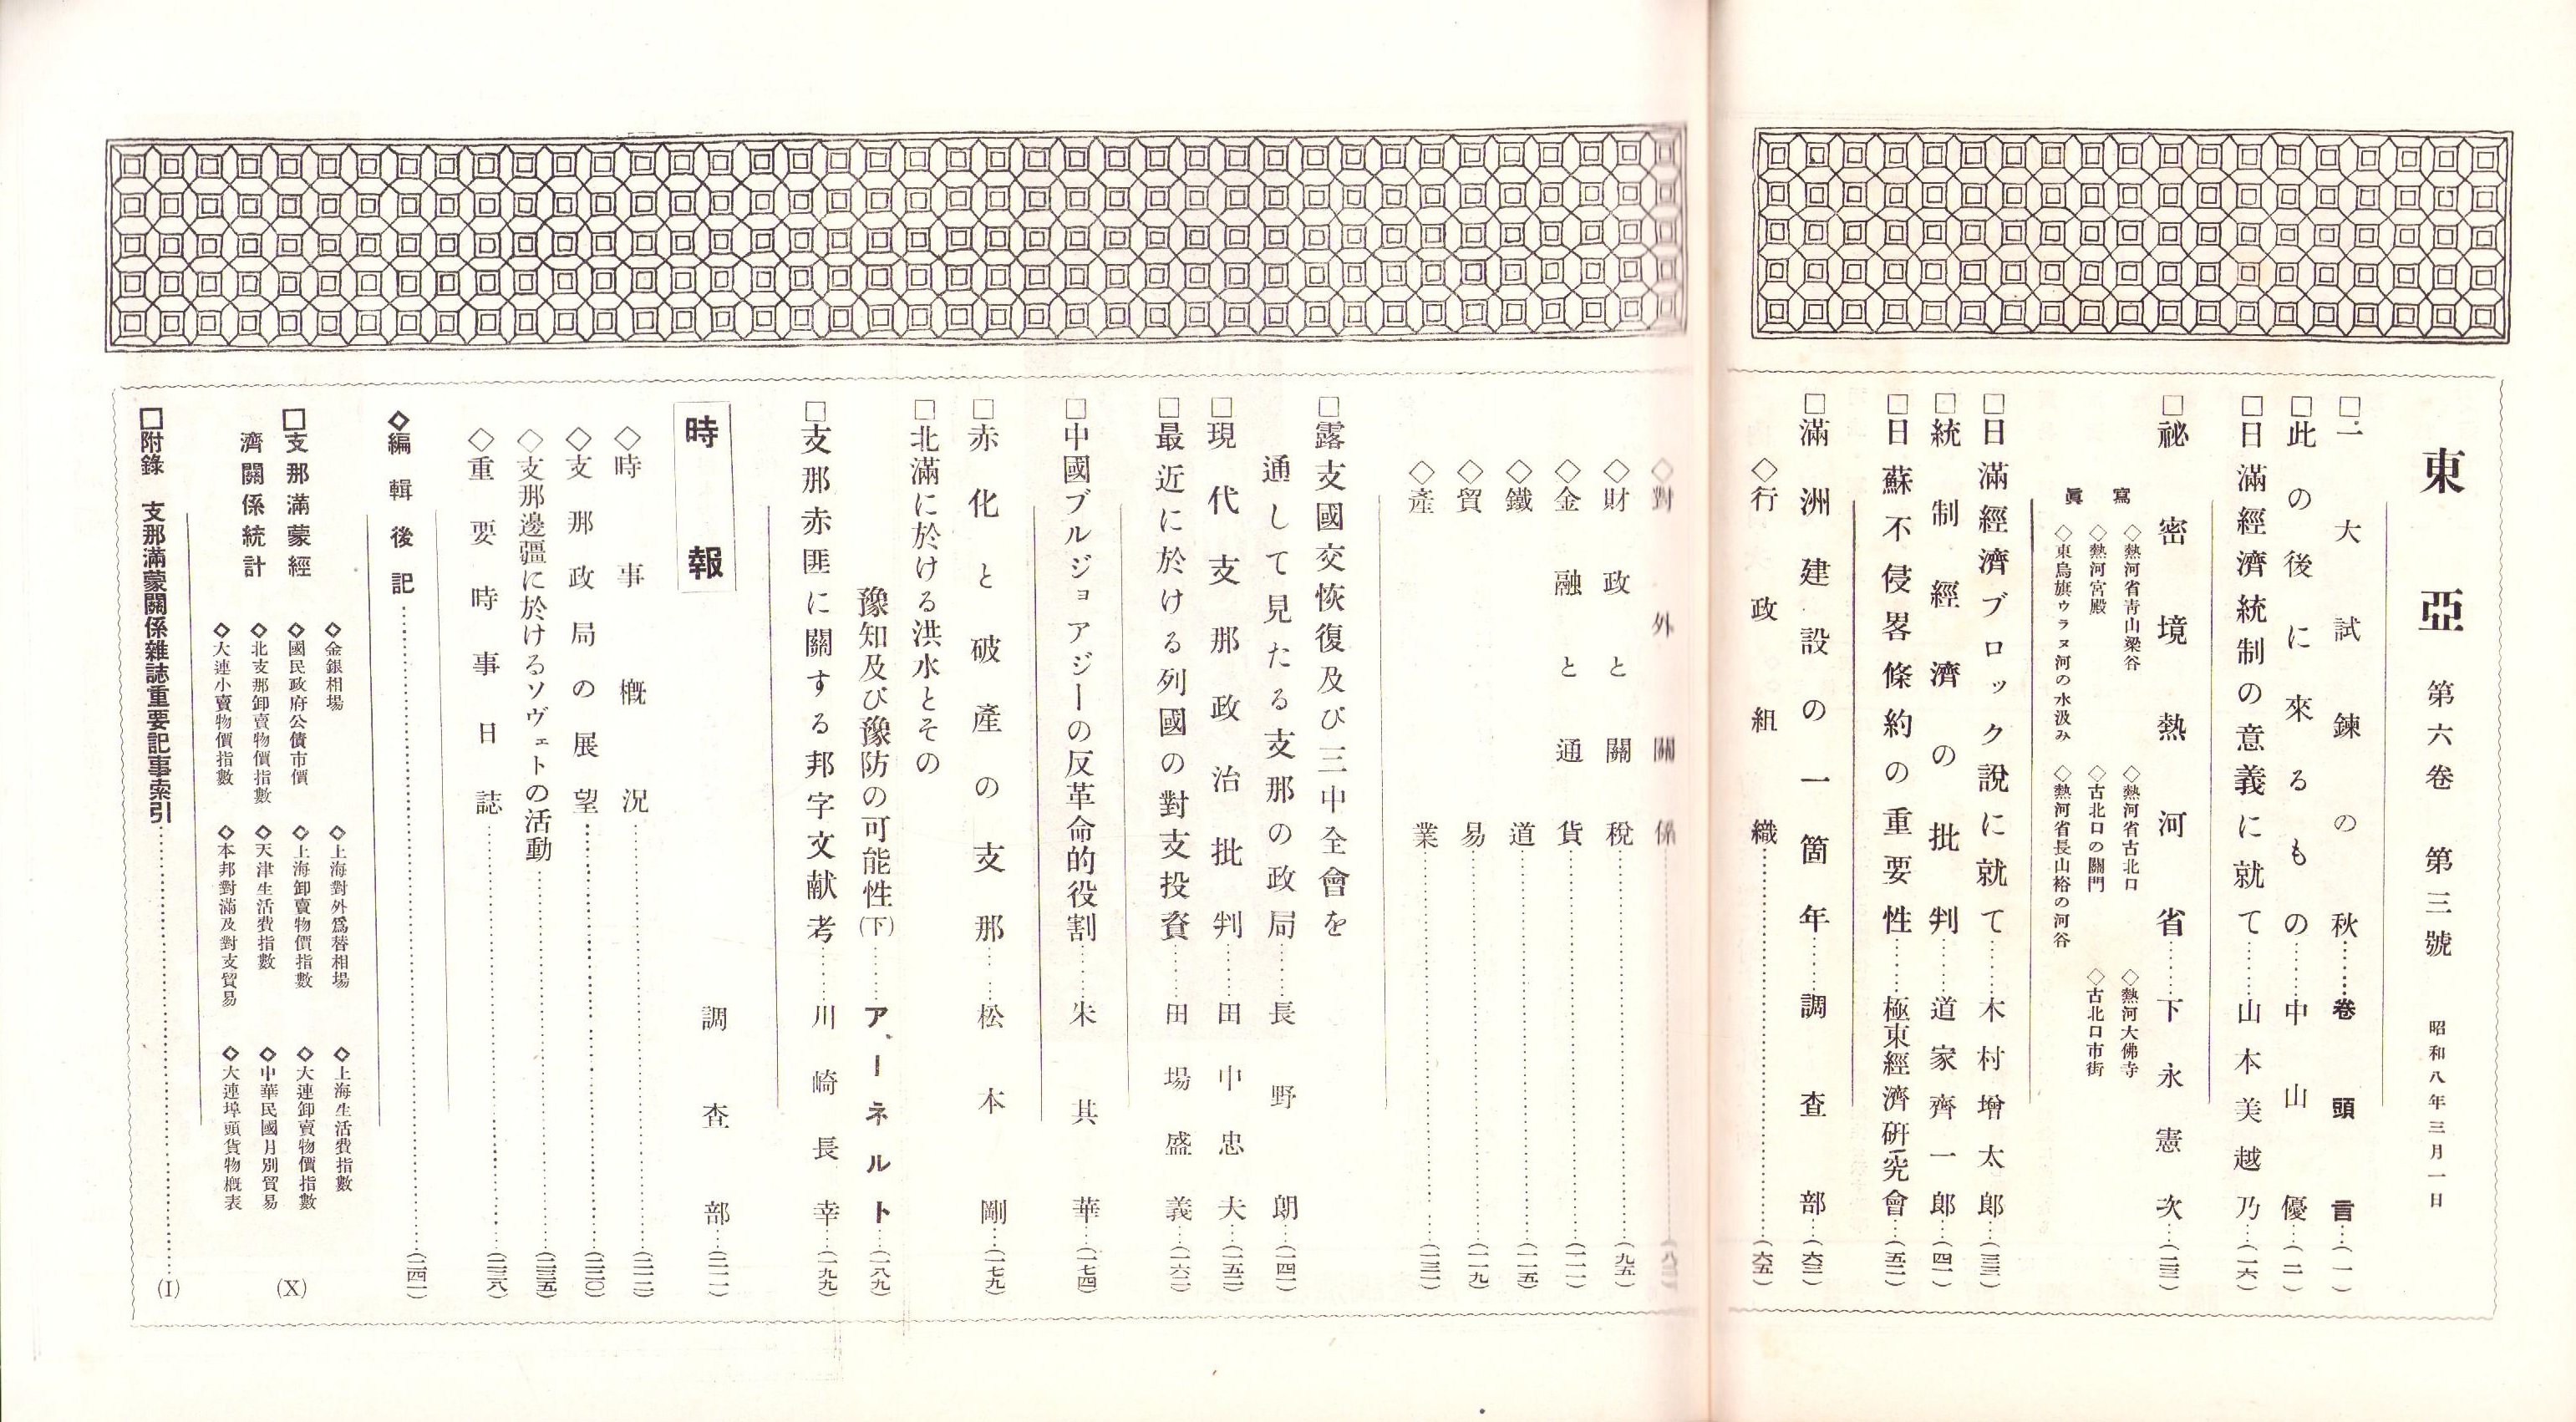 東亞 第六卷 第三號 昭和八年三月一日
□一大試鍊の秋……卷頭言…(一)
□此の後に來るもの……中山優…(二)
□日滿經濟統制の意義に就て……山本美越乃…(一六)
□祕密境熱河省……下永憲次…(二三)
寫眞
◇熱河省靑山梁谷 ◇熱河省古北口 ◇熱河大佛寺
◇熱河宮殿 ◇古北口の關門 ◇古北口市街
◇東烏旗ゥラヌ河の水汲み ◇熱河省長山裕の河谷
□日滿經濟ブロック說に就て……木村增太郎…(三三)
□統制經濟の批判……道家齊一郎…(四一)
□日蘇不侵畧條約の重要性……極東經濟硏究會…(五二)
□滿洲建設の一箇年……調査部…(六三)
◇行政組織……(六五)
◇對外關係……
◇財政と關稅……(九五)
◇金融と通貨……(一一一)
◇鐵道……(一一五)
◇貿易……(一一九)
◇產業……(一三一)
□露支國交恢復及び三中全會を
通して見たる支那の政局……長野朗…(一四一)
□現代支那政治批判……田中忠夫…(一五二)
□最近に於ける列國の對支投資……田場盛義…(一六二)
□中國ブルジョアジーの反革命的役割……朱其華…(一七四)
□赤化と破產の支那……松本剛…(一七九)
□北滿に於ける洪水とその
豫知及び豫防の可能性(下)……アーネルト…(一八九)
□支那赤匪に關する邦字文献考……川崎長幸…(一九九)
時報 調査部…(二一一)
◇時事槪況……(二一二)
◇支那政局の展望……(二二〇)
◇支那邊疆に於けるソヴェトの活動……(二三五)
◇重要時事日誌……(二三八)
◇編輯後記……(二四一)
□支那滿蒙經
濟關係統計 (X)
◇金銀相場 ◇上海對外爲替相場 ◇上海生活費指數
◇國民政府公債市價 ◇上海卸賣物價指數 ◇大連卸賣物價指數
◇北支那卸賣物價指數 ◇天津生活費指數 ◇中華民國月別貿易
◇大連小賣物價指數 ◇本邦對滿及對支貿易 ◇大連埠頭貨物槪表
□附錄 支那滿蒙關係雜誌重要記事索引……(I)